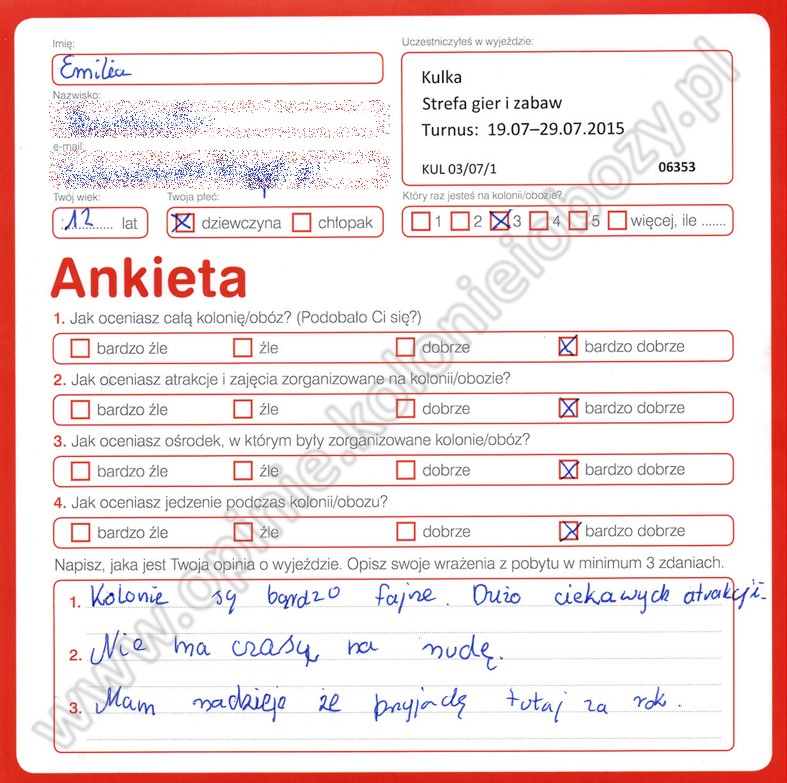 Imię:
Emilia
Nazwisko:
e-mail:
Twój wiek:
12 lat
Twoja płeć:
dziewczyna chłopak
Uczestniczyłeś w wyjeździe:
Kulka
Strefa gier i zabaw
Turnus: 19.07–29.07.2015
KUL 03/07/1 06353
Który raz jesteś na kolonii/obozie?
1 2 3 4 5 więcej, ile .......
Ankieta
1. Jak oceniasz całą kolonię/obóz? (Podobało Ci się?)
bardzo źle źle dobrze bardzo dobrze
2. Jak oceniasz atrakcje i zajęcia zorganizowane na kolonii/obozie?
bardzo źle źle dobrze bardzo dobrze
3. Jak oceniasz ośrodek, w którym były zorganizowane kolonie/obóz?
bardzo źle źle dobrze bardzo dobrze
4. Jak oceniasz jedzenie podczas kolonii/obozu?
bardzo źle źle dobrze bardzo dobrze
Napisz, jaka jest Twoja opinia o wyjeździe. Opisz swoje wrażenia z pobytu w minimum 3 zdaniach.
1. Kolonie są bardzo fajne. Dużo ciekawych atrakcji.
2. Nie ma czasu na nudę.
3. Mam nadzieje że przyjadę tutaj za rok.
www.opinie.kolonieiobozy.pl